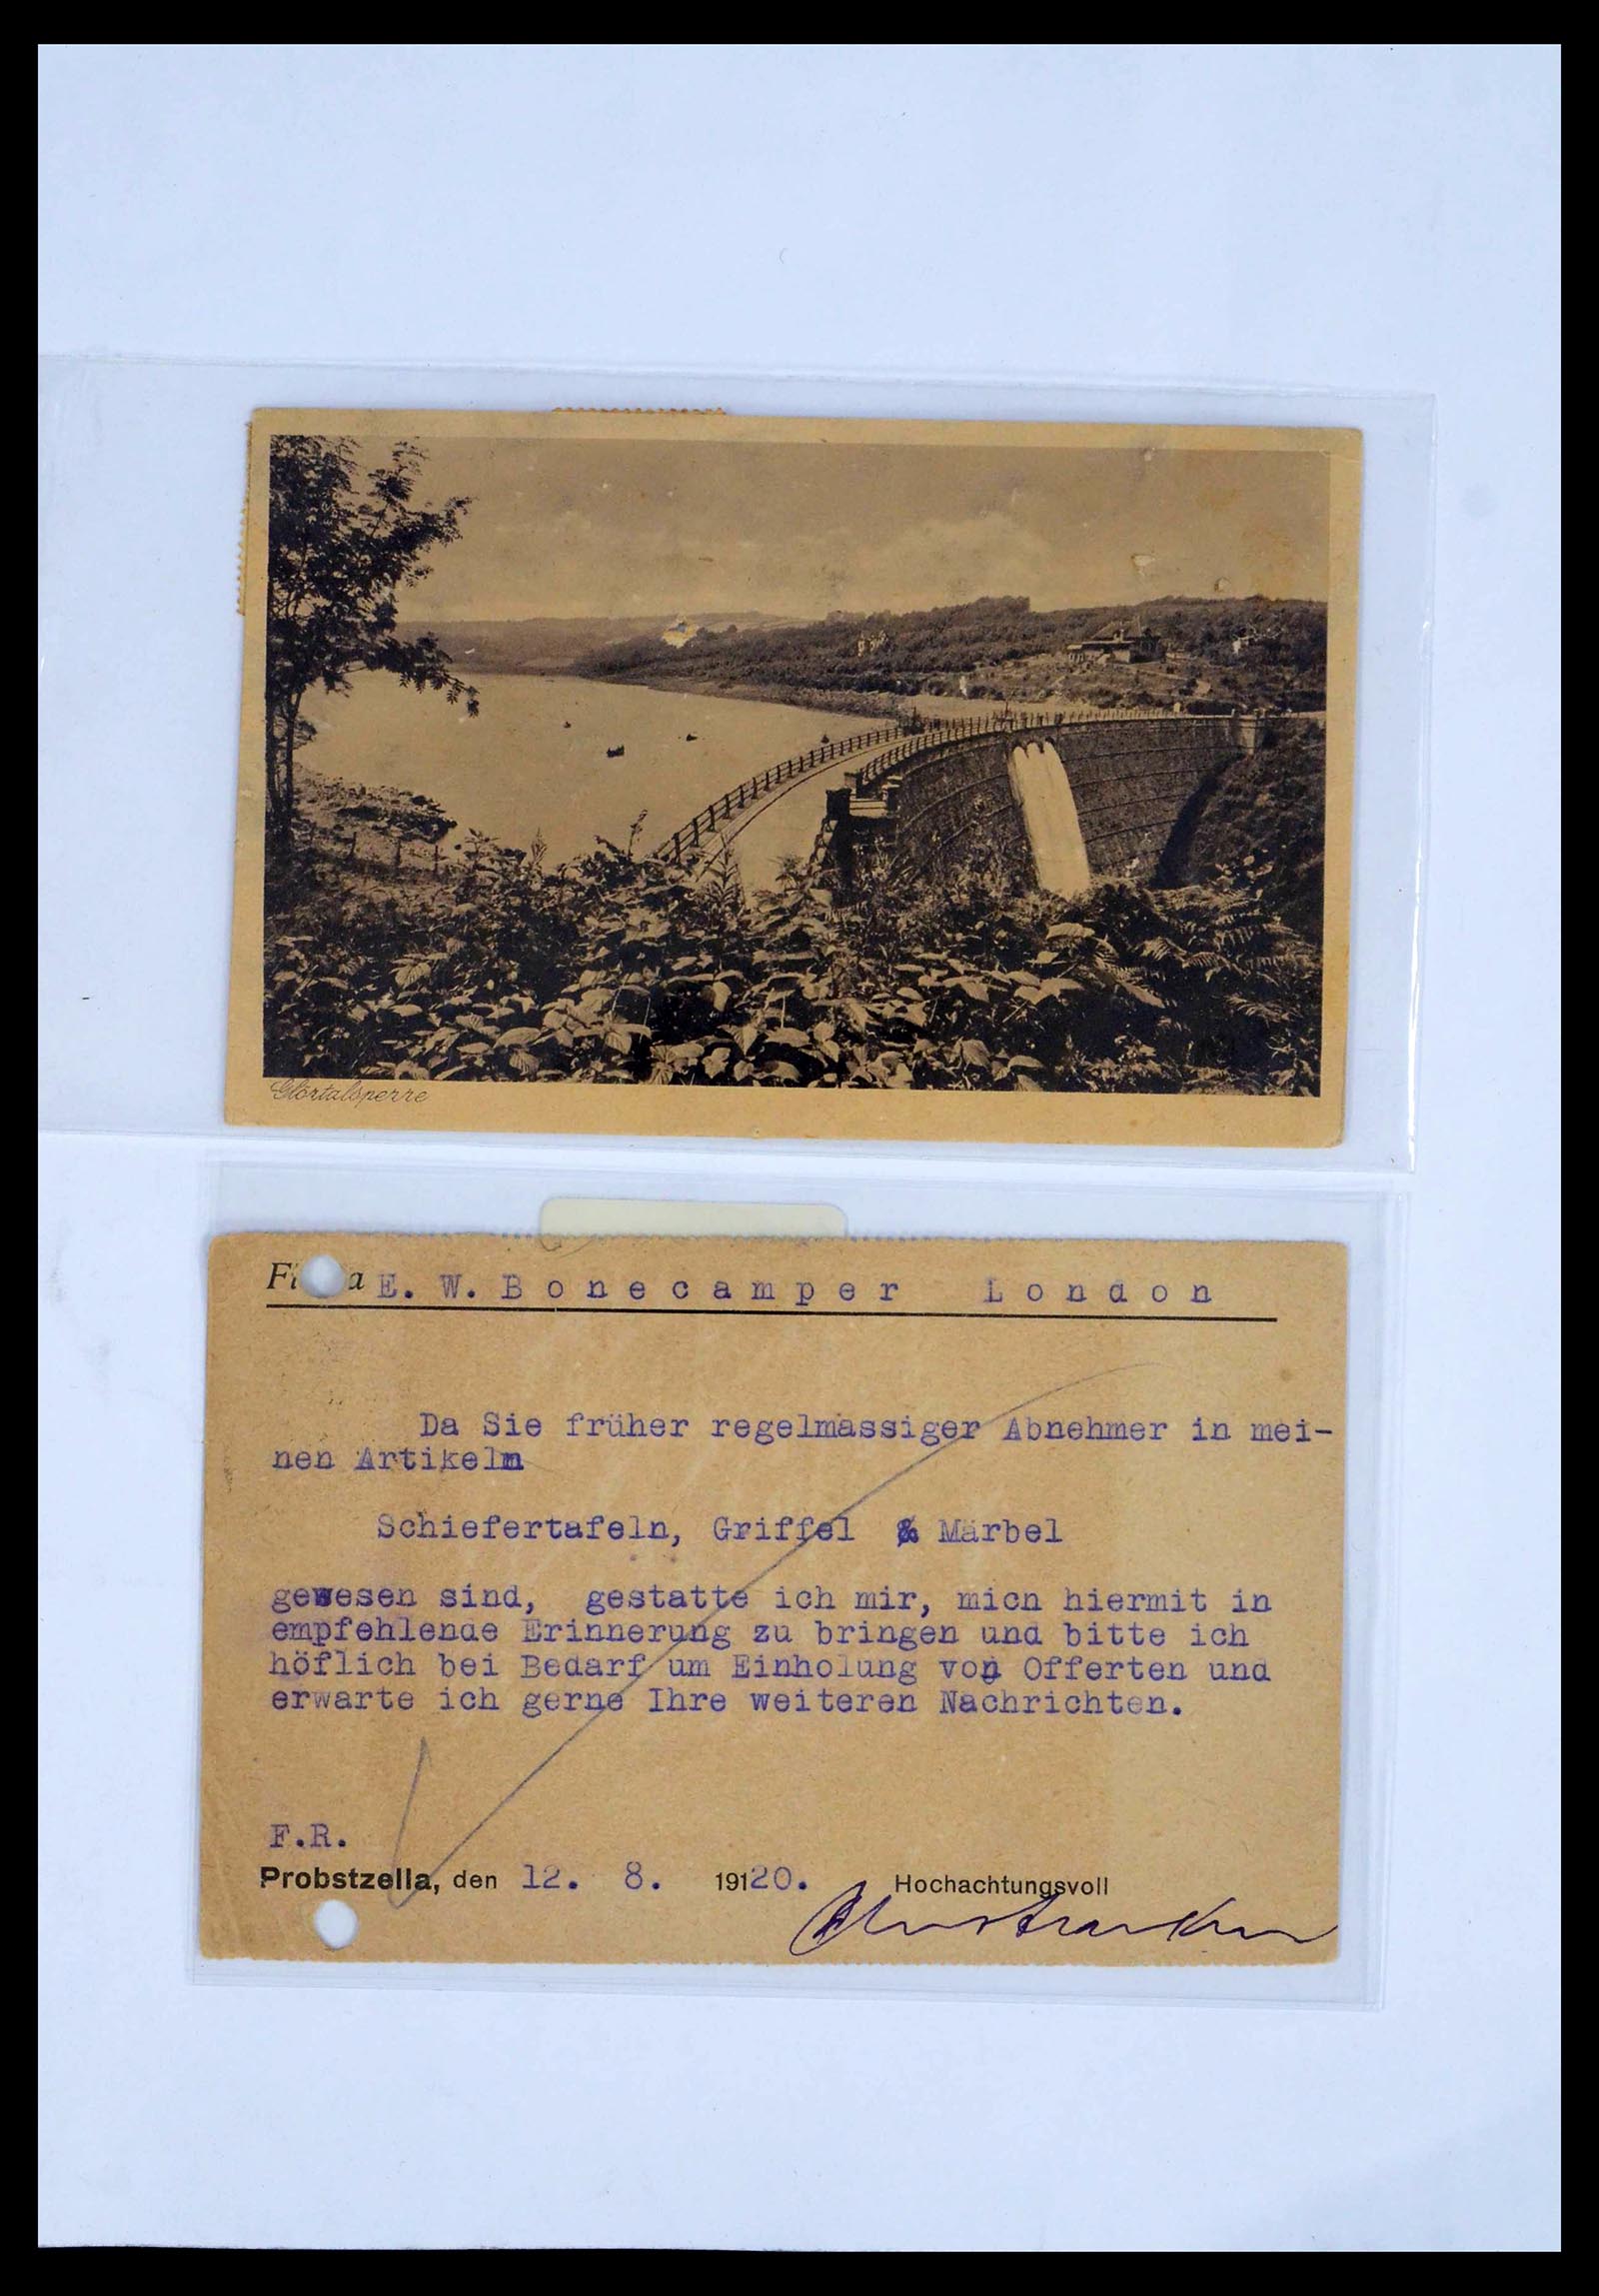 Glörtalsperre
Fi a E. W. Bonecamper London
Da Sie früher regelmässiger Abnehmer in mei-
nen Artikeln
Schiefertafeln, Griffel & Märbel
gewesen sind, gestatte ich mir, mich hiermit in
empfehlende Erinnerung zu bringen und bitte ich
höflich bei Bedarf um Einholung von Offerten und
erwarte ich gerne Ihre weiteren Nachrichten.
F.R.
Probstzella, den 12. 8. 19120. Hochachtungsvoll